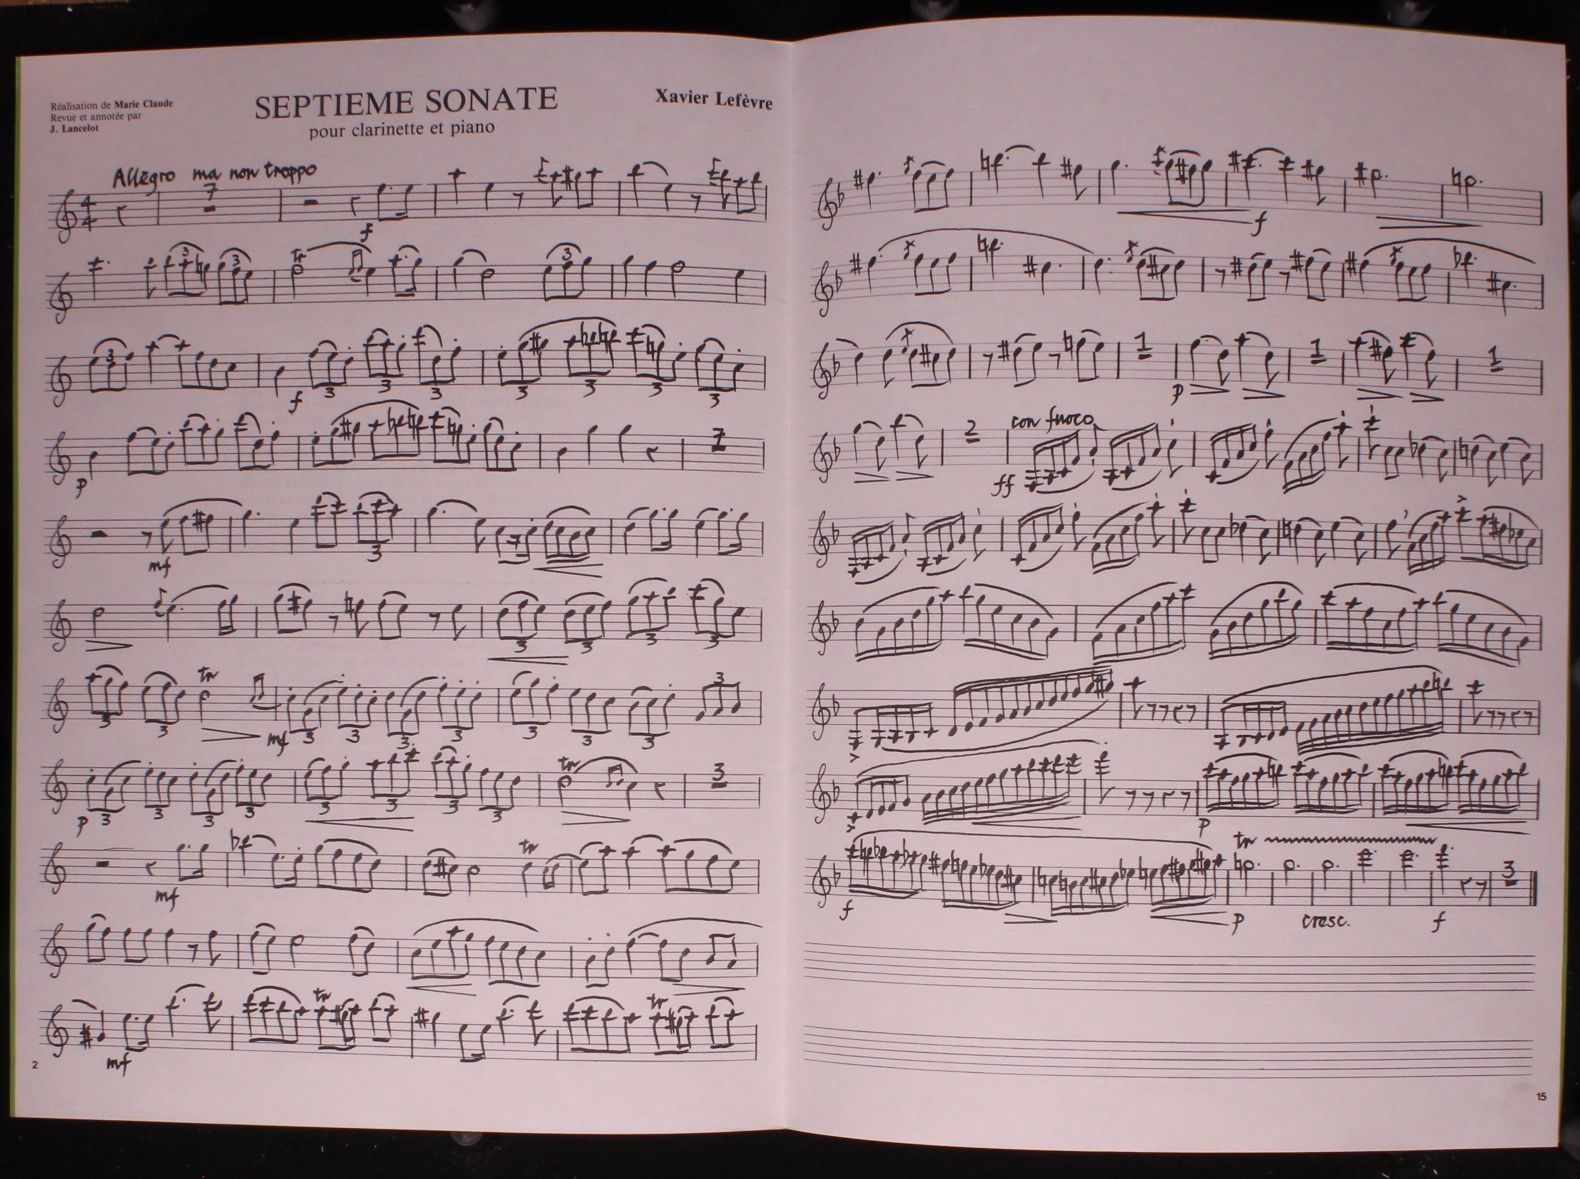 Réalisation de Marie Claude
Revue et annotée par
J. Lancelot
SEPTIEME SONATE
pour clarinette et piano
Xavier Lefèvre
Allegro ma non troppo
7
f
3 3 tr 3
3 f 3 3 3 3 3 3 3
p 7
mf 3
3 3 3 3
3 3 tr mf 3 3 3 3 3 3 3 3
p 3 3 3 3 3 3 3 3 tr 3
mf tr
mf tr tr
2
f
1 p 1 1
2 con fuoco ff
p
f tr p cresc. f 3
15